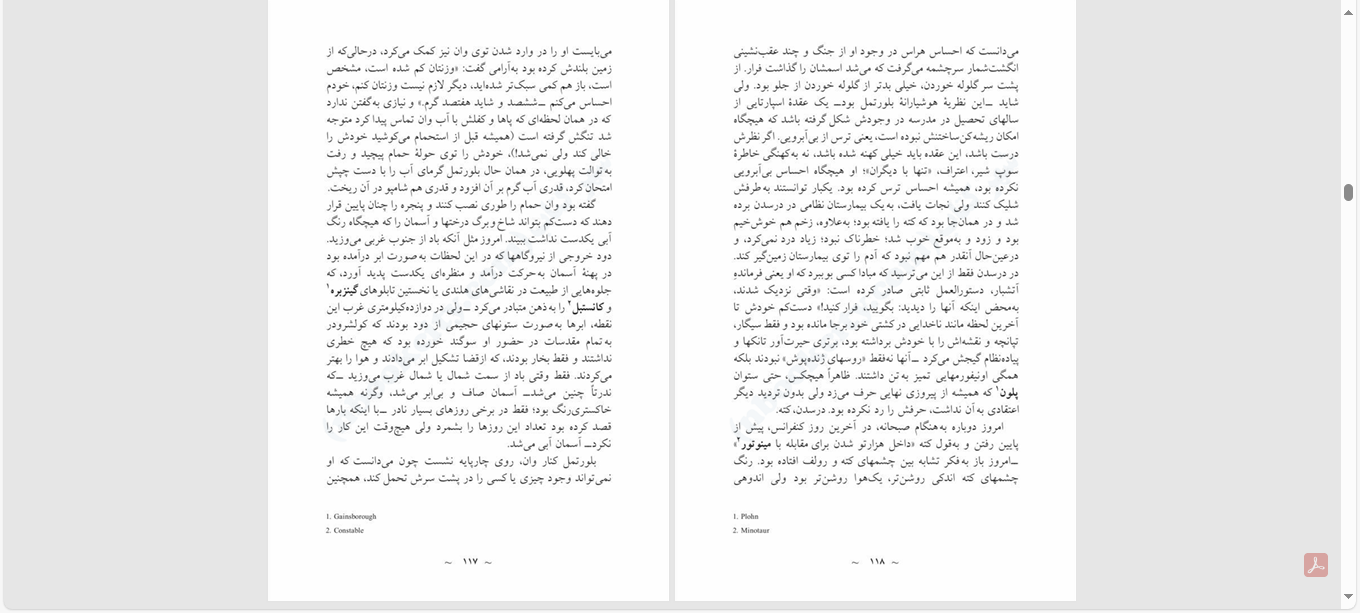 می‌بایست او را در وارد شدن توی وان نیز کمک می‌کرد، درحالی‌که از
زمین بلندش کرده بود به‌آرامی گفت: «وزنتان کم شده است، مشخص
است، باز هم کمی سبک‌تر شده‌اید، دیگر لازم نیست وزنتان کنم، خودم
احساس می‌کنم ــ ششصد و شاید هفتصد گرم.» و نیازی به‌گفتن ندارد
که در همان لحظه‌ای که پاها و کفلش با آب وان تماس پیدا کرد متوجه
شد تنگش گرفته است (همیشه قبل از استحمام می‌کوشید خودش را
خالی کند ولی نمی‌شد!)، خودش را توی حولهٔ حمام پیچید و رفت
به‌توالت پهلویی، در همان حال بلورتمل گرمای آب را با دست چپش
امتحان کرد، قدری آب گرم بر آن افزود و قدری هم شامپو در آن ریخت.
گفته بود وان حمام را طوری نصب کنند و پنجره را چنان پایین قرار
دهند که دست‌کم بتواند شاخ‌وبرگ درختها و آسمان را که هیچگاه رنگ
آبی یکدست نداشت ببیند. امروز مثل آنکه باد از جنوب غربی می‌وزید.
دود خروجی از نیروگاهها که در این لحظات به‌صورت ابر درآمده بود
در پهنهٔ آسمان به‌حرکت درآمد و منظره‌ای یکدست پدید آورد، که
جلوه‌هایی از طبیعت در نقاشی‌های هلندی یا نخستین تابلوهای گینزبره۱
و کانستبل۲ را به‌ذهن متبادر می‌کرد ــ ولی در دوازده‌کیلومتری غرب این
نقطه، ابرها به‌صورت ستونهای حجیمی از دود بودند که کولشرودر
به‌تمام مقدسات در حضور او سوگند خورده بود که هیچ خطری
نداشتند و فقط بخار بودند، که ازقضا تشکیل ابر می‌دادند و هوا را بهتر
می‌کردند. فقط وقتی باد از سمت شمال یا شمال غرب می‌وزید ــ که
ندرتاً چنین می‌شد ــ آسمان صاف و بی‌ابر می‌شد، وگرنه همیشه
خاکستری‌رنگ بود؛ فقط در برخی روزهای بسیار نادر ــ با اینکه بارها
قصد کرده بود تعداد این روزها را بشمرد ولی هیچ‌وقت این کار را
نکرد ــ آسمان آبی می‌شد.
بلورتمل کنار وان، روی چارپایه نشست چون می‌دانست که او
نمی‌تواند وجود چیزی یا کسی را در پشت سرش تحمل کند، همچنین
1. Gainsborough
2. Constable
~ ۱۱۷ ~
می‌دانست که احساس هراس در وجود او از جنگ و چند عقب‌نشینی
انگشت‌شمار سرچشمه می‌گرفت که می‌شد اسمشان را گذاشت فرار. از
پشت سر گلوله خوردن، خیلی بدتر از گلوله خوردن از جلو بود. ولی
شاید ــ این نظریهٔ هوشیارانهٔ بلورتمل بود ــ یک عقدهٔ اسپارتایی از
سالهای تحصیل در مدرسه در وجودش شکل گرفته باشد که هیچگاه
امکان ریشه‌کن‌ساختنش نبوده است، یعنی ترس از بی‌آبرویی. اگر نظرش
درست باشد، این عقده باید خیلی کهنه شده باشد، نه به‌کهنگی خاطرهٔ
سوپ شیر، اعتراف، «تنها با دیگران»؛ او هیچگاه احساس بی‌آبرویی
نکرده بود، همیشه احساس ترس کرده بود. یکبار توانستند به‌طرفش
شلیک کنند ولی نجات یافت، به‌یک بیمارستان نظامی در درسدن برده
شد و در همان‌جا بود که کته را یافته بود؛ به‌علاوه، زخم هم خوش‌خیم
بود و زود و به‌موقع خوب شد؛ خطرناک نبود؛ زیاد درد نمی‌کرد، و
درعین‌حال آنقدر هم مهم نبود که آدم را توی بیمارستان زمین‌گیر کند.
در درسدن فقط از این می‌ترسید که مبادا کسی بویبرد که او یعنی فرماندهِ
آتشبار، دستورالعمل ثابتی صادر کرده است: «وقتی نزدیک شدند،
به‌محض اینکه آنها را دیدید: بگویید، فرار کنید!» دست‌کم خودش تا
آخرین لحظه مانند ناخدایی در کشتی خود برجا مانده بود و فقط سیگار،
تپانچه و نقشه‌اش را با خودش برداشته بود، برتری حیرت‌آور تانکها و
پیاده‌نظام گیجش می‌کرد ــ آنها نه‌فقط «روسهای ژنده‌پوش» نبودند بلکه
همگی اونیفورمهایی تمیز به‌تن داشتند. ظاهراً هیچکس، حتی ستوان
پلون۱ که همیشه از پیروزی نهایی حرف می‌زد ولی بدون تردید دیگر
اعتقادی به آن نداشت، حرفش را رد نکرده بود. درسدن، کته.
امروز دوباره به‌هنگام صبحانه، در آخرین روز کنفرانس، پیش از
پایین رفتن و به‌قول کته «داخل هزارتو شدن برای مقابله با مینوتور۲»
ــ امروز باز به‌فکر تشابه بین چشمهای کته و رولف افتاده بود. رنگ
چشمهای کته اندکی روشن‌تر، یک‌هوا روشن‌تر بود ولی اندوهی
1. Plohn
2. Minotaur
~ ۱۱۸ ~